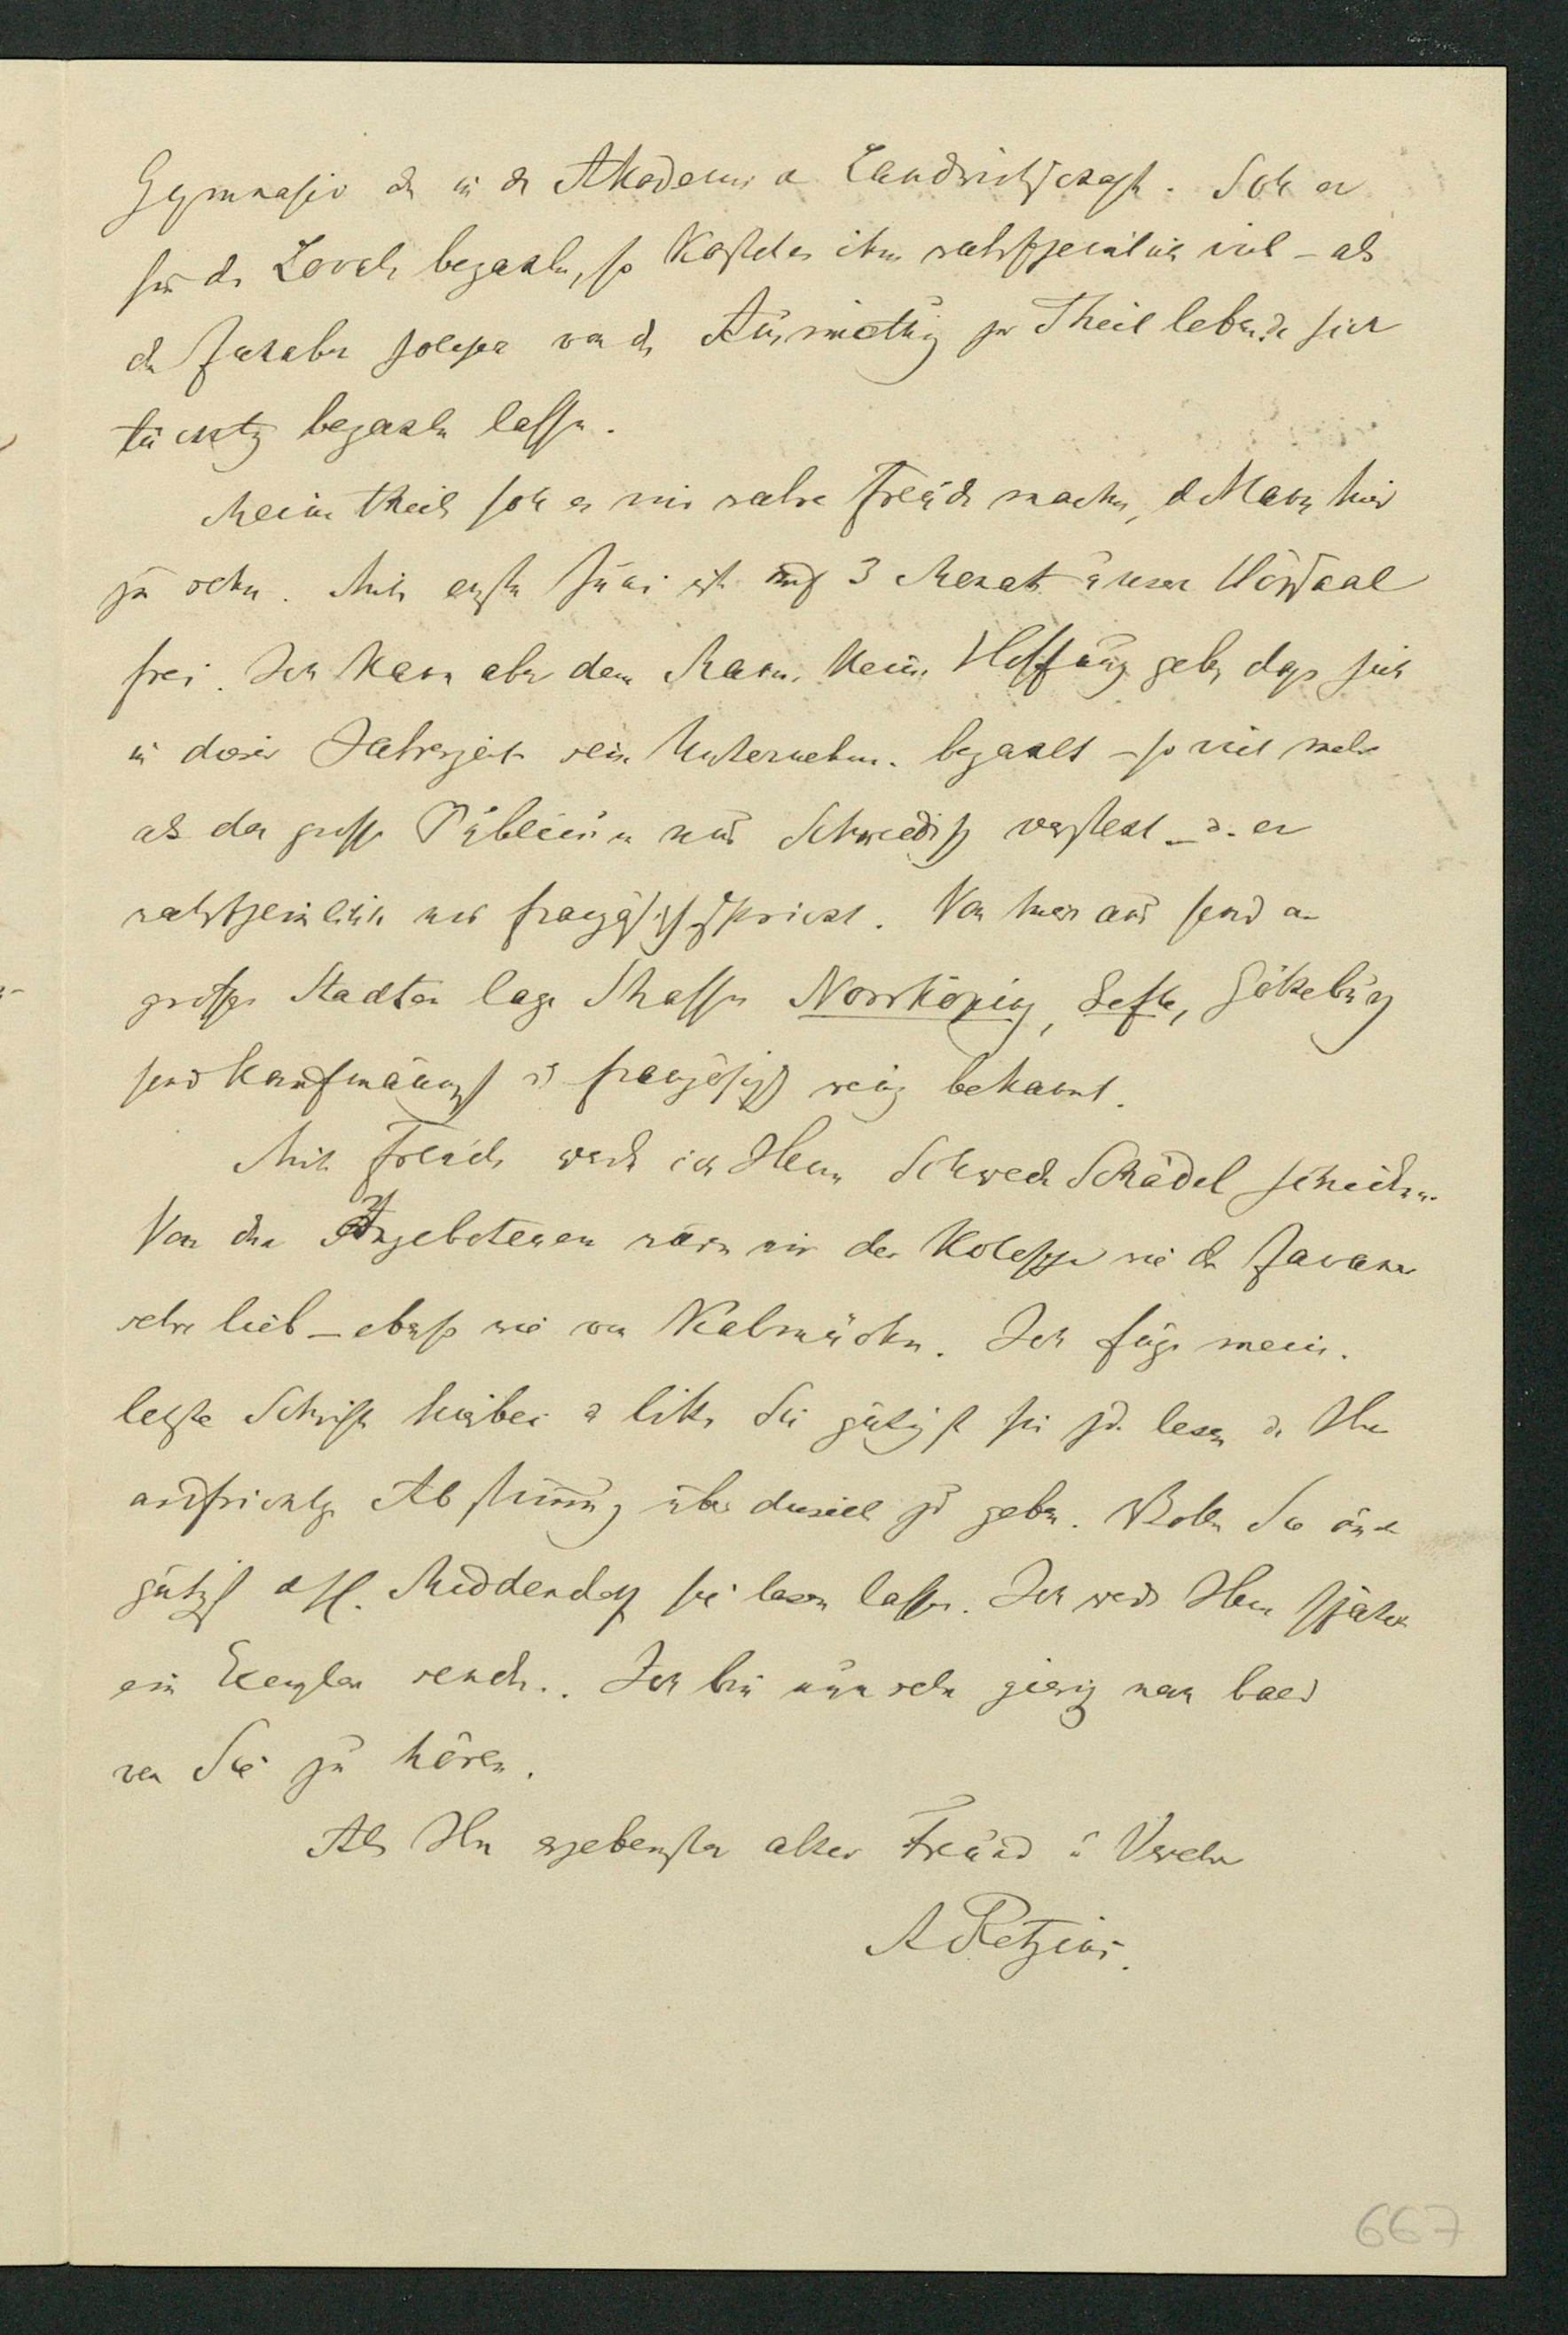 Gymnasio od in der Akademi d Landwirthschaft. Soll er
für de Locale bezahlen, so kostet es ihm wahrscheinlich viel – als
die Inhaber solcher von de Ausmiethung zu Theil lebende sich
tüchtig bezahlen lassen.
Meine theils soll es mir wahre Freude machen, d Mann hier
zu sehen. Mit erste Juni ist auf 3 Monate unser Hörsaal
frei. Ich kann aber dem Mann keine Hoffnung geben dass sich
in dieser Jahreszeit sein Unternehmen bezahlt – so viel mehr
als das grosse Publicum nur Schwedisch versteht – u. er
wahrscheinlich nur französisch spricht. Von hier aus sind an
grosse Stadten lage Strassen Norrköping, Gefle, Götheburg
sind kaufmännisch u französisch wenig bekannt.
Mit Freude werde ich Ihnen Schwede Schädel schicken.
Von den Angebotenen wären mir der Kolosche wie der Javaner
sehr lieb – ebenso wie von Kalmücken. Ich füge meine
letzte Schrift hierbei u bitte Sie gütigst sie zu lesen u Ihre
aufrichtige Abstimmung über dieselbe zu geben. Wollen Sie auch
gütigst H. Middendorff sie lesen lassen. Ich werde Ihnen später
ein Exemplar senden. Ich bin nun sehr gierig nun bald
von Sie zu hören.
Als Ihr ergebenster alter Freund u Verehrer
A Retzius.
667